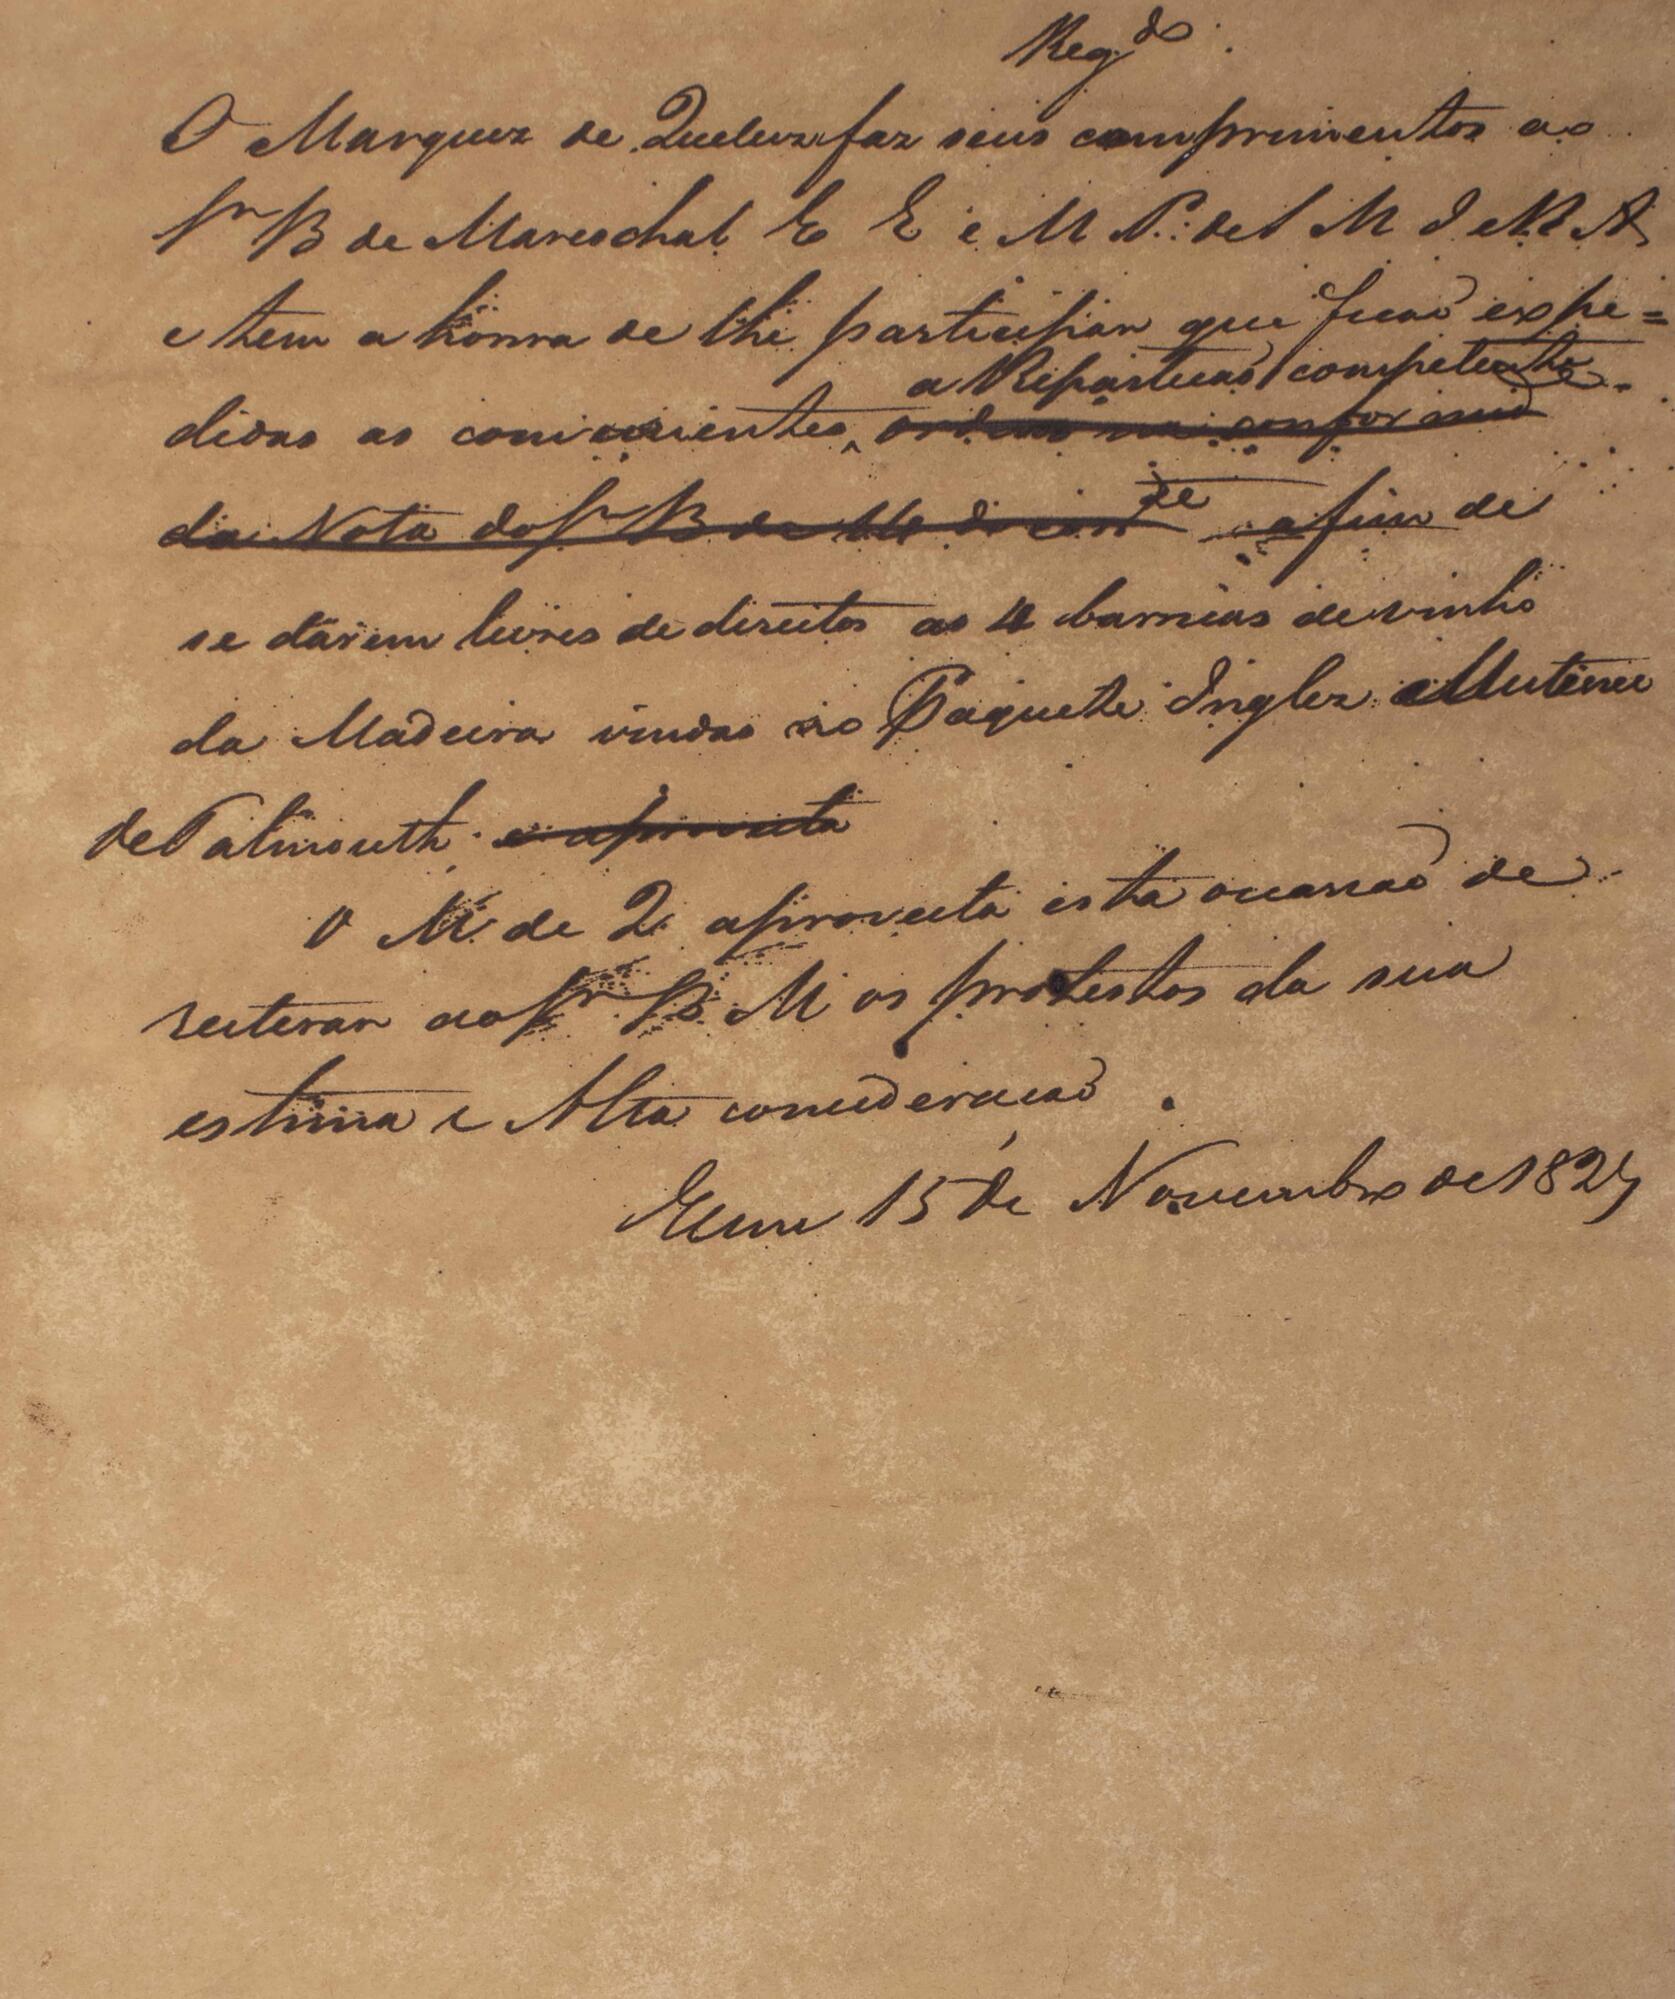 Reg.do
O Marquez de Queluz faz seus comprimentos ao
Sr B de Mareschal E E e M P. de S M I e R A
e tem a honra de lhe participar que ficaõ expe=
a Repartiçaõ competente
didas as convenientes ordens na conformid
da Nota do Sr B de 14 do corr te afim de
se darem livres de direitos as 4 barricas de vinho
da Madeira vindas no Paquete Inglez
de Falmouth e aproveita
O M. de Q. aproveita esta occasiaõ de
reiterar ao Sr B M os protestos da sua
estima e Alta consideraçaõ.
Em 15 de Novembro de 1827